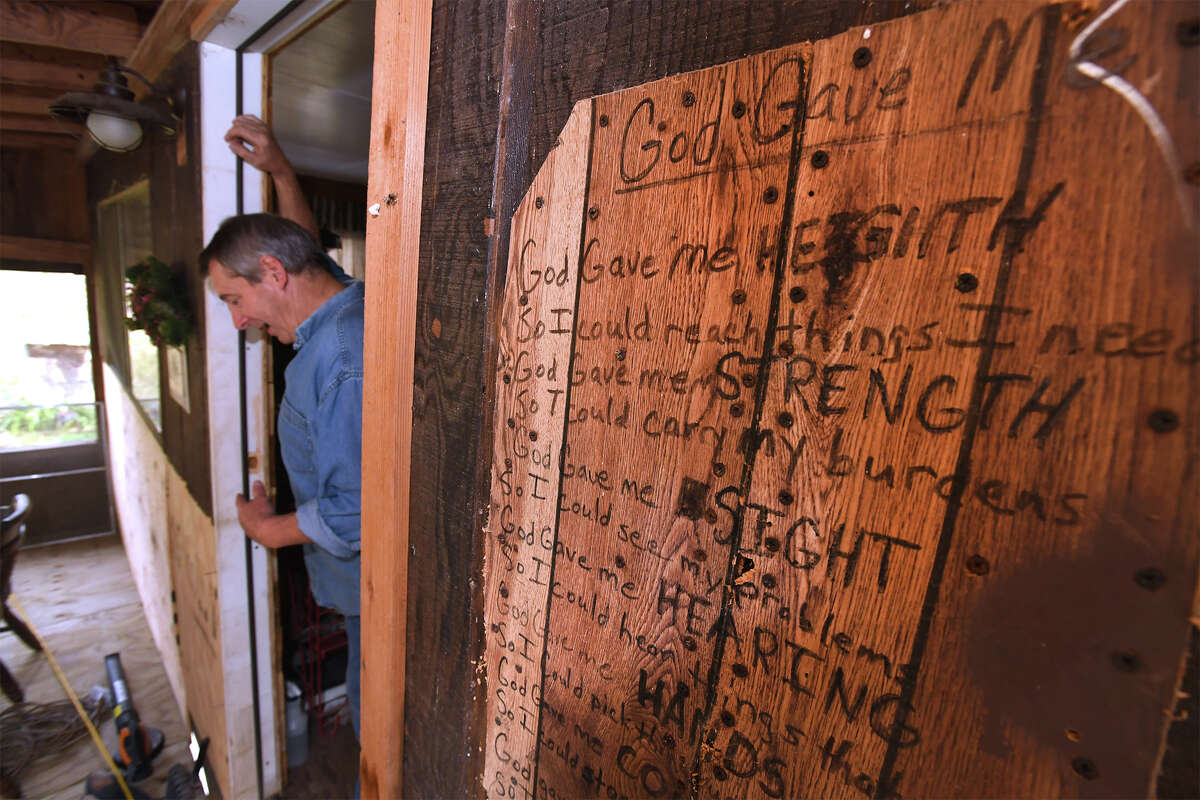 God Gave Me
God Gave me HEIGHTH
So I could reach things I need
God Gave me STRENGTH
So I could carry my burdens
God Gave me SIGHT
So I could see my problems
God Gave me HEARING
So I could hear things that
God Gave me HANDS
So I could pick
God Gave me
So I could
God gave
So I